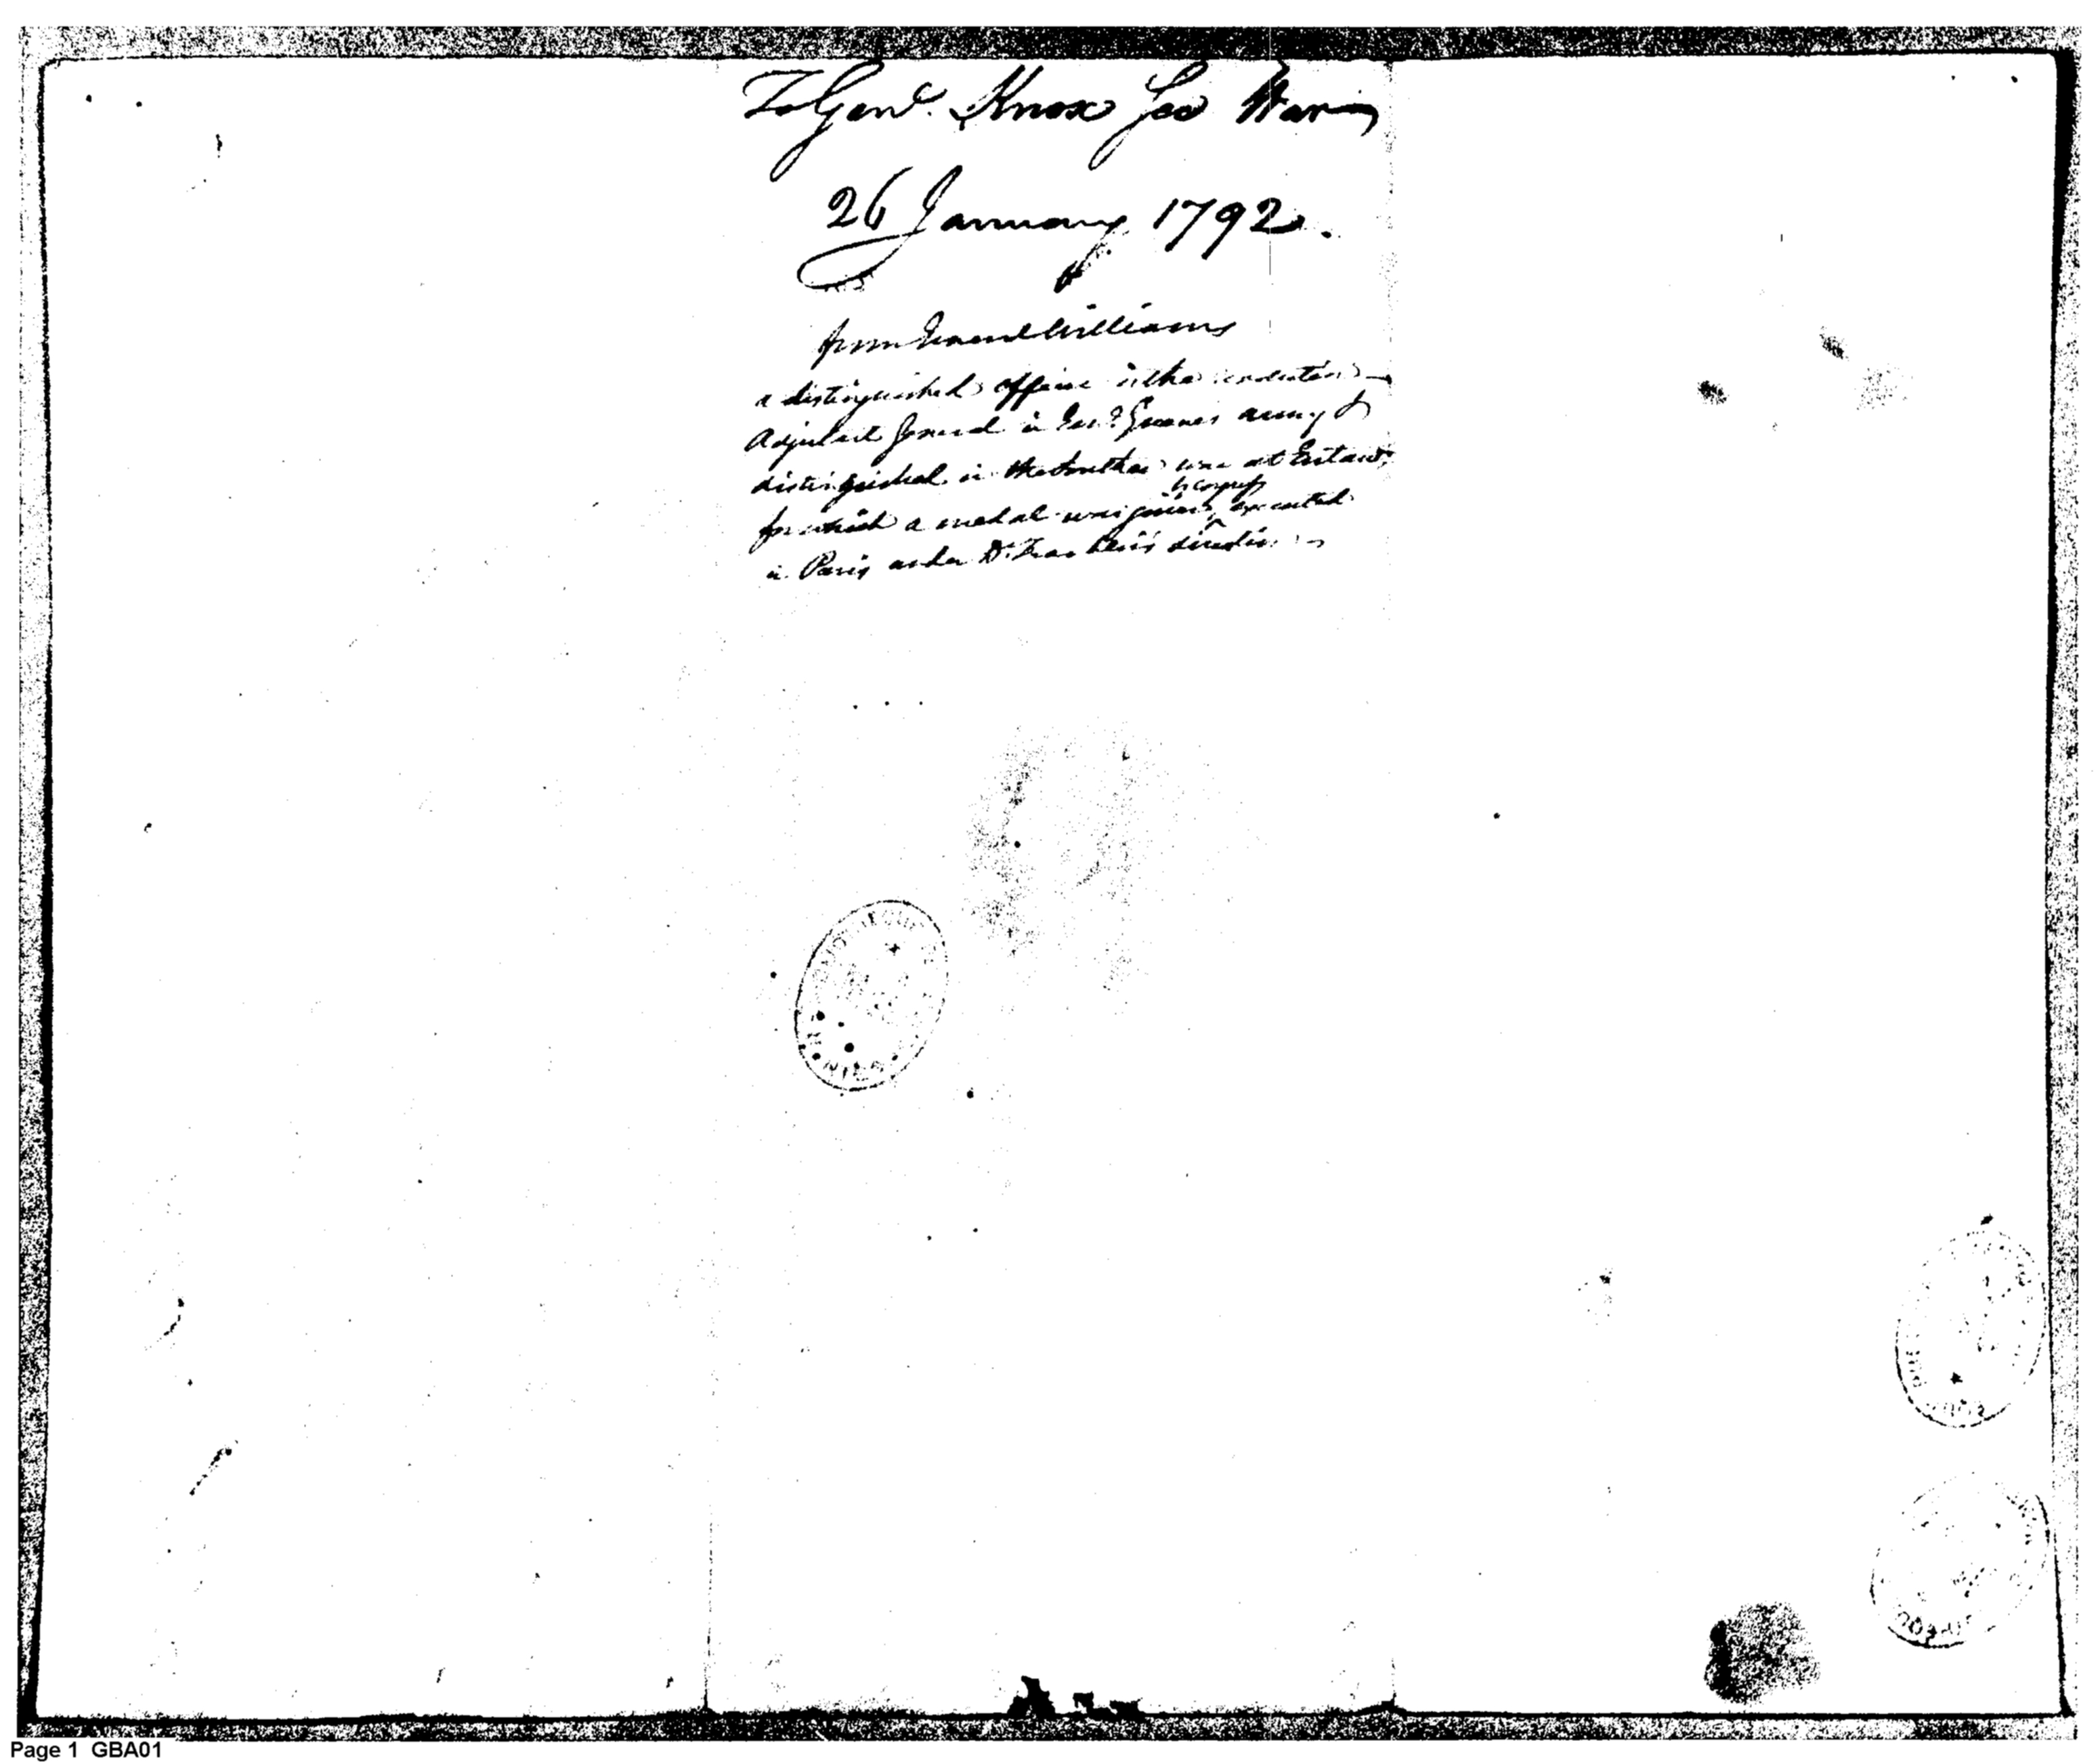 To Genl. Knox Sec War
26 January 1792.
from General Williams
a distinguished officer in the revolution
Adjutant General in Genl. Greenes army &
distinguished in the Southern war at Eutaw,
by congress
for which a medal was given, executed
in Paris under Dr. Franklin's direction
Page 1 GBA01